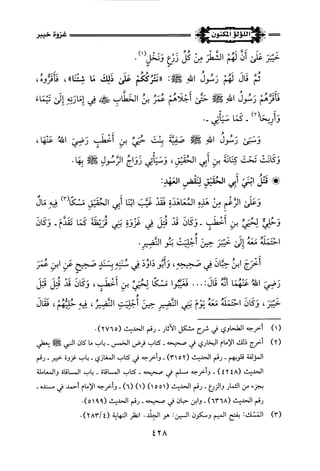 اللؤلؤ المكنون
غزوة خيبر
خَيْبَرَ عَلَى أَنَّ لَهُمُ الشَّطْرَ مِنْ كُلِّ زَرْعٍ وَنَخْلٍ(١).
ثُمَّ قَالَ لَهُمْ رَسُولُ اللهِ ﷺ: «نَتْرُكُكُمْ عَلَى ذَلِكَ مَا شِئْنَا»، فَأَقَرُّوهُ،
فَأَقَرَّهُمْ رَسُولُ اللهِ ﷺ حَتَّى أَجْلَاهُمْ عُمَرُ بنُ الخَطَّابِ ﷺ فِي إِمَارَتِهِ إِلَى تَيْمَاءَ
وَأَرِيحَا(٢) ـ كَمَا سَيَأْتِي ـ.
وَسَبَى رَسُولُ اللهِ ﷺ صَفِيَّةَ بِنْتَ حُيَيِّ بنِ أَخْطَبٍ رَضِيَ اللهُ عَنْهَا،
وَكَانَتْ تَحْتَ كِنَانَةَ بنِ أَبِي الحُقَيْقِ، وَسَيَأْتِي زَوَاجُ الرَّسُولِ ﷺ بِهَا.
* قَتْلُ ابْنَيْ أَبِي الحُقَيْقِ لِنَقْضِ العَهْدِ:
وَعَلَى الرَّغْمِ مِنْ هَذِهِ المُعَاهَدَةِ فَقَدْ غَيَّبَ ابْنَا أَبِي الحُقَيْقِ مَسْكًا(٣) فِيهِ مَالٌ
وَحُلِيٌّ لِحُيَيِّ بنِ أَخْطَبٍ ـ وَكَانَ قَدْ قُتِلَ فِي غَزْوَةِ بَنِي قُرَيْظَةَ كَمَا تَقَدَّمَ ـ وَكَانَ
احْتَمَلَهُ مَعَهُ إِلَى خَيْبَرَ حِينَ أُجْلِيَتْ بَنُو النَّضِيرِ.
أَخْرَجَ ابنُ حِبَّانَ فِي صَحِيحِهِ، وَأَبُو دَاوُدَ فِي سُنَنِهِ بِسَنَدٍ صَحِيحٍ عَنِ ابنِ عُمَرَ
رَضِيَ اللهُ عَنْهُمَا أَنَّهُ قَالَ: ... فَغَيَّبُوا مَسْكًا لِحُيَيِّ بنِ أَخْطَبٍ، وَكَانَ قَدْ قُتِلَ قَبْلَ
خَيْبَرَ، وَكَانَ احْتَمَلَهُ مَعَهُ يَوْمَ بَنِي النَّضِيرِ حِينَ أُجْلِيَتِ النَّضِيرُ، فِيهِ حُلِيُّهُمْ، فَقَالَ
(١) أخرجه الطحاوي في شرح مشكل الآثار ـ رقم الحديث (٢٧٦٥).
(٢) أخرج ذلك الإمام البخاري في صحيحه ـ كتاب فرض الخمس ـ باب ما كان النبي ﷺ يعطي
المؤلفة قلوبهم ـ رقم الحديث (٣١٥٢) ـ وأخرجه في كتاب المغازي ـ باب غزوة خيبر ـ رقم
الحديث (٤٢٤٨) ـ وأخرجه مسلم في صحيحه ـ كتاب المساقاة ـ باب المساقاة والمعاملة
بجزء من الثمار والزرع ـ رقم الحديث (١٥٥١) (١) (٦) ـ وأخرجه الإمام أحمد في مسنده ـ
رقم الحديث (٦٣٦٨) ـ وابن حبان في صحيحه ـ رقم الحديث (٥١٩٩).
(٣) المَسْك: بفتح الميم وسكون السين: هو الجِلْد. انظر النهاية (٢٨٣/٤).
٤٢٨